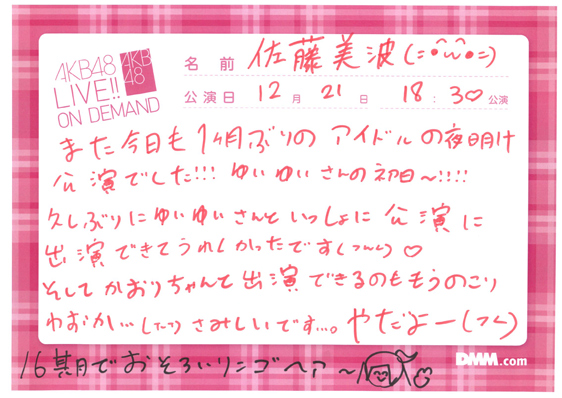 AKB48
LIVE!!
ON DEMAND
AKB
48
名前 佐藤美波(=•̂ω•̂=)
公演日 12月 21日 18:30♡公演
また今日も1ヶ月ぶりの アイドルの夜明け
公演でした!!! ゆいゆいさんの初日〜!!!!
久しぶりにゆいゆいさんといっしょに公演に
出演できてうれしかったです(つω<)♡
そしてかおりちゃんて出演できるのももうのこり
わずか...(たつ)さみしいです...。やだよー(つ<)
16期でおそろいリンゴヘア〜
DMM.com